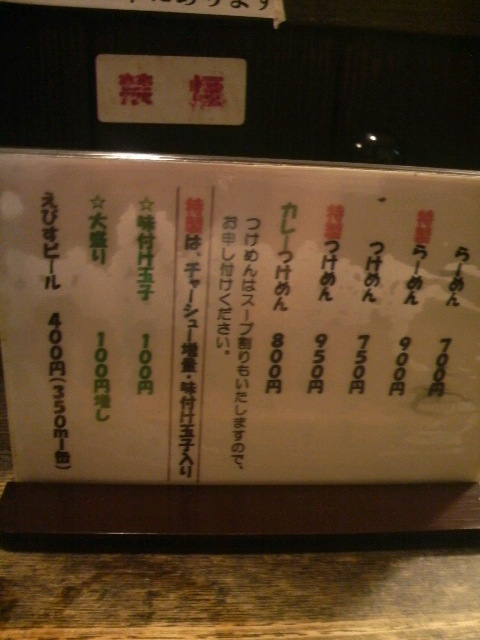 あります
禁煙
らーめん 700円
特製らーめん 900円
つけめん 750円
特製つけめん 950円
カレーつけめん 800円
つけめんはスープ割りもいたしますので、
お申し付けください。
特製は、チャーシュー増量・味付け玉子入り
☆味付け玉子 100円
☆大盛り 100円増し
えびすビール 400円(350ml缶)